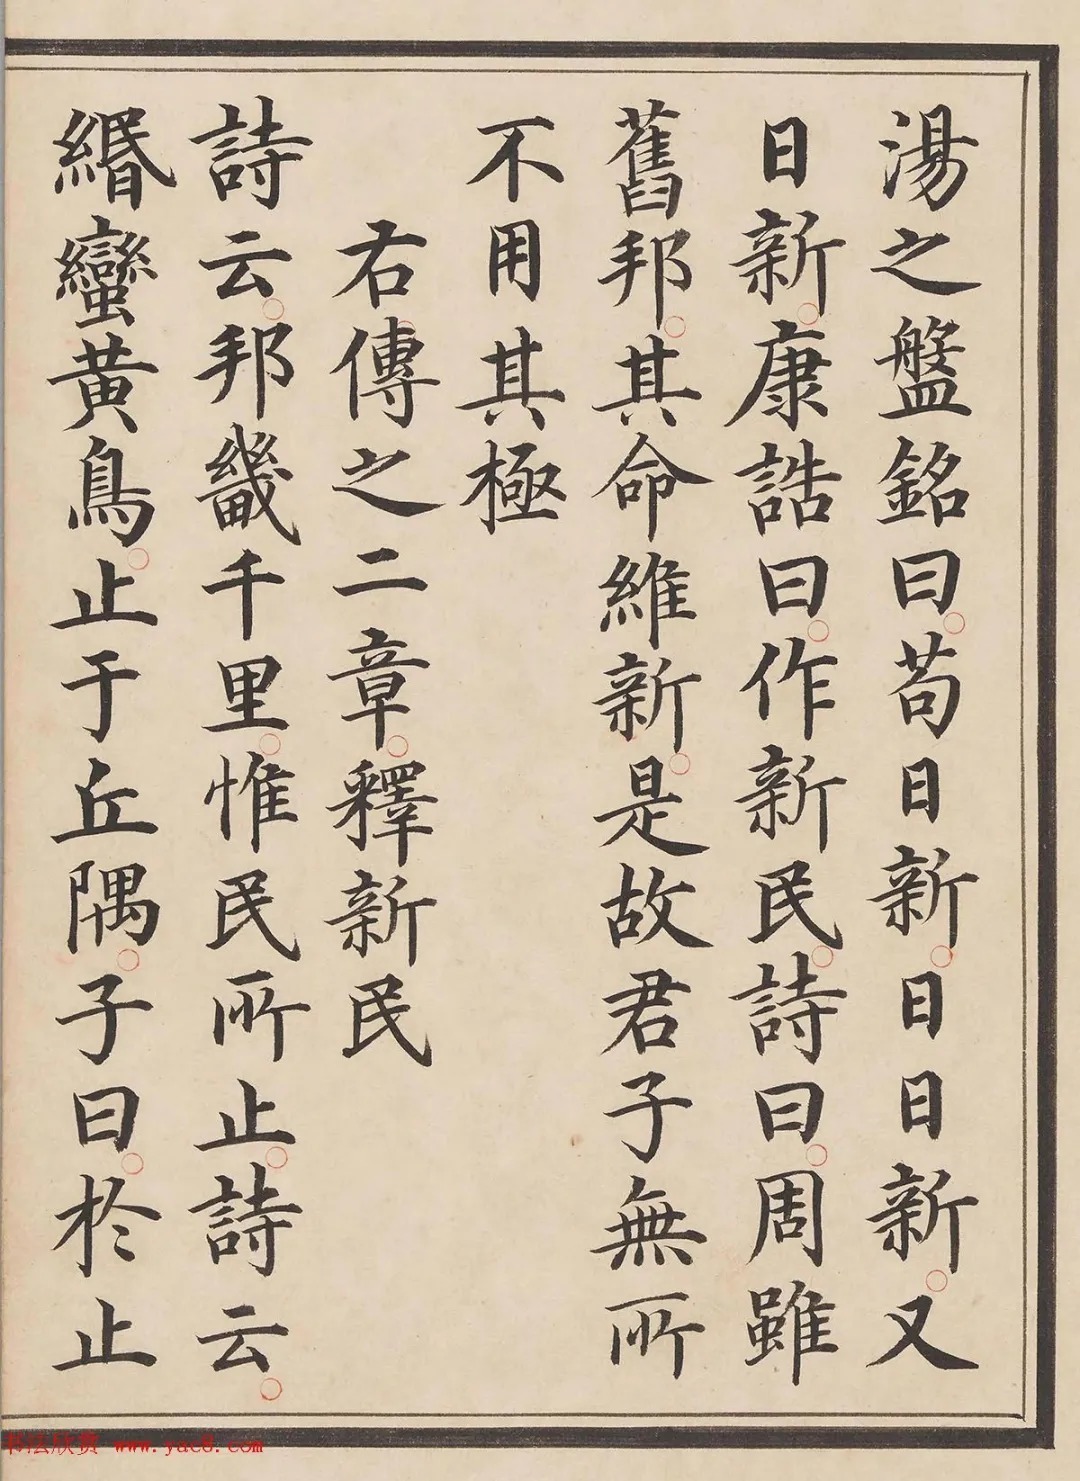 湯之盤銘曰苟日新日日新又
日新康誥曰作新民詩曰周雖
舊邦其命維新是故君子無所
不用其極
右傳之二章釋新民
詩云邦畿千里惟民所止詩云
緡蠻黃鳥止于丘隅子曰於止
书法欣赏 www.yac8.com